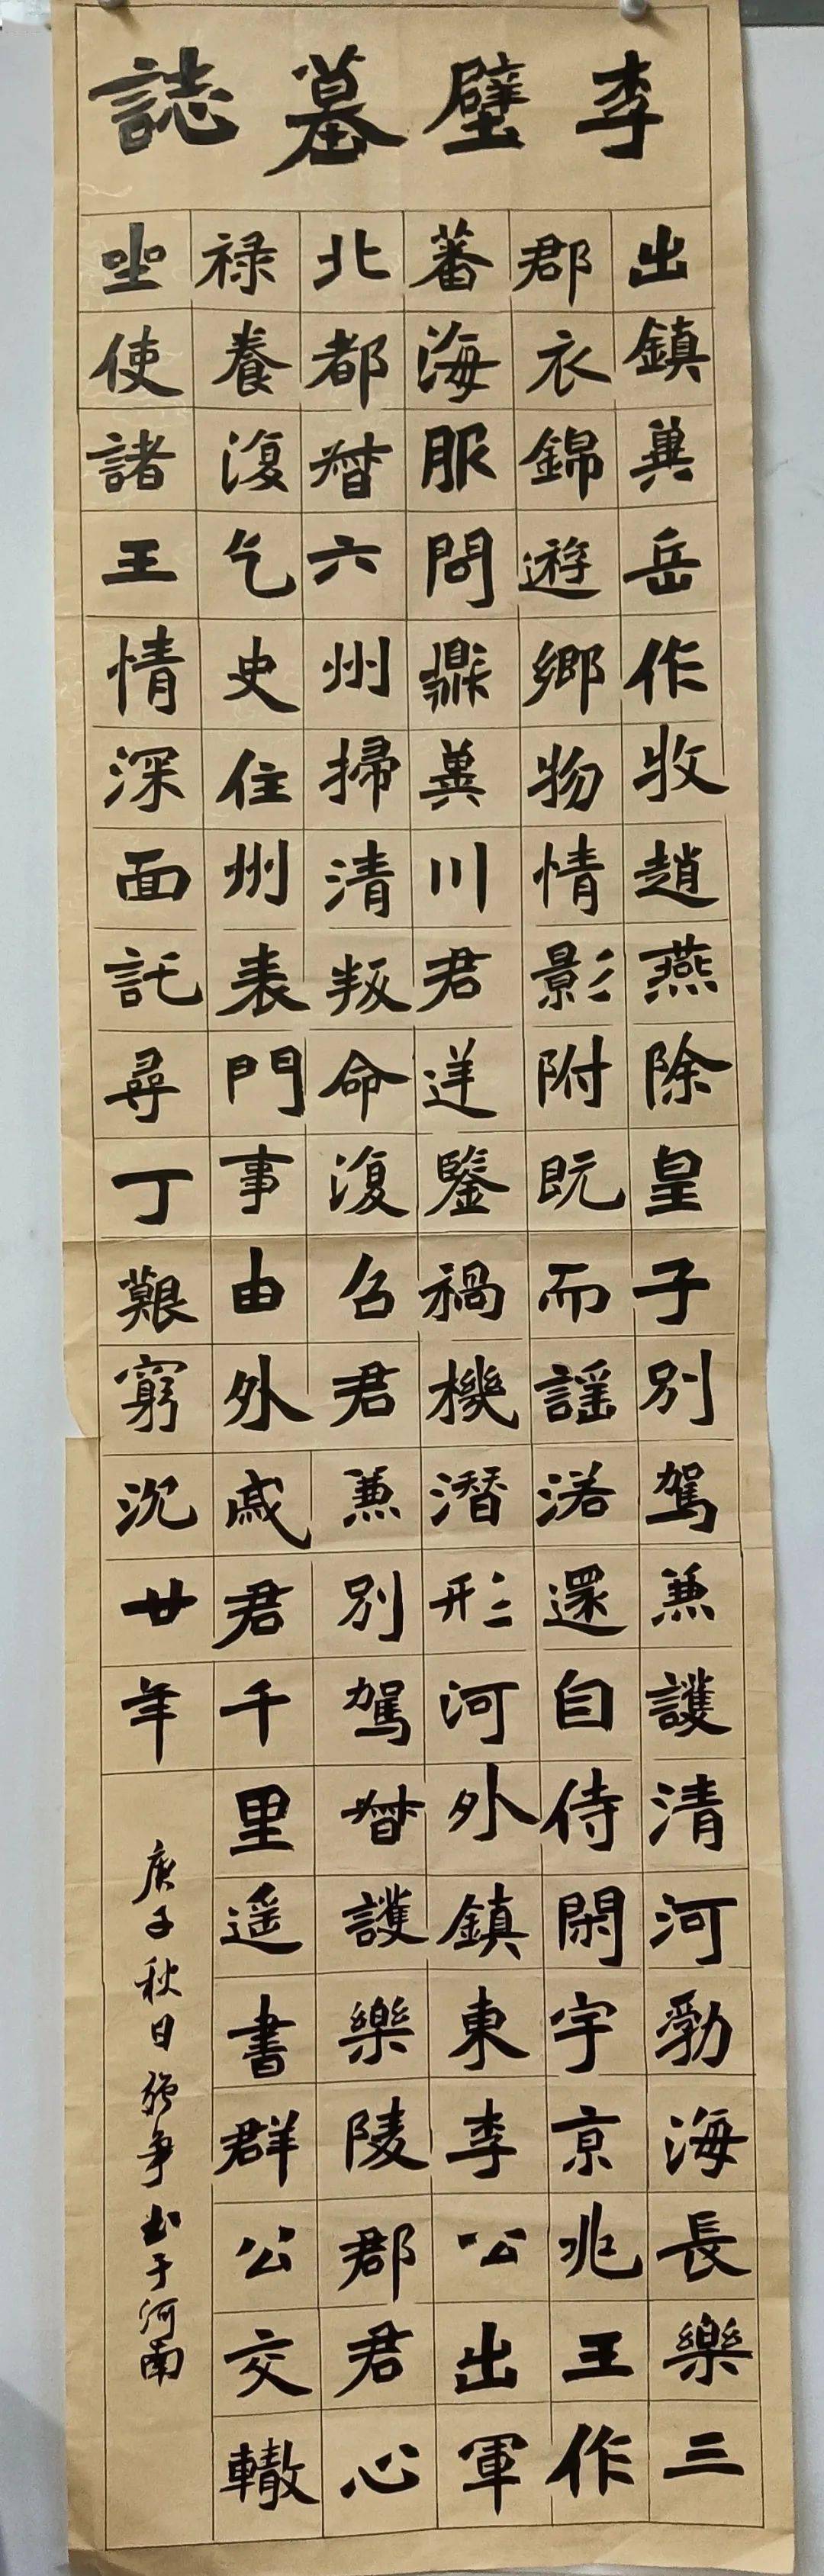 李璧墓誌
出鎮冀岳作牧趙燕除皇子別駕兼護清河勃海長樂三
郡衣錦遊鄉物情影附既而謠渃還自侍閑宇京兆王作
蕃海服問鼎冀川君逆鑒禍機潛形河外鎮東李公出軍
北都督六州掃清叛命復召君兼別駕督護樂陵郡君心
祿養復乞史任州表門事由外戚君千里遙書群公交轍
坐使諸王情深面託尋丁艱窮沉廿年
庚子秋日 爭書于河南